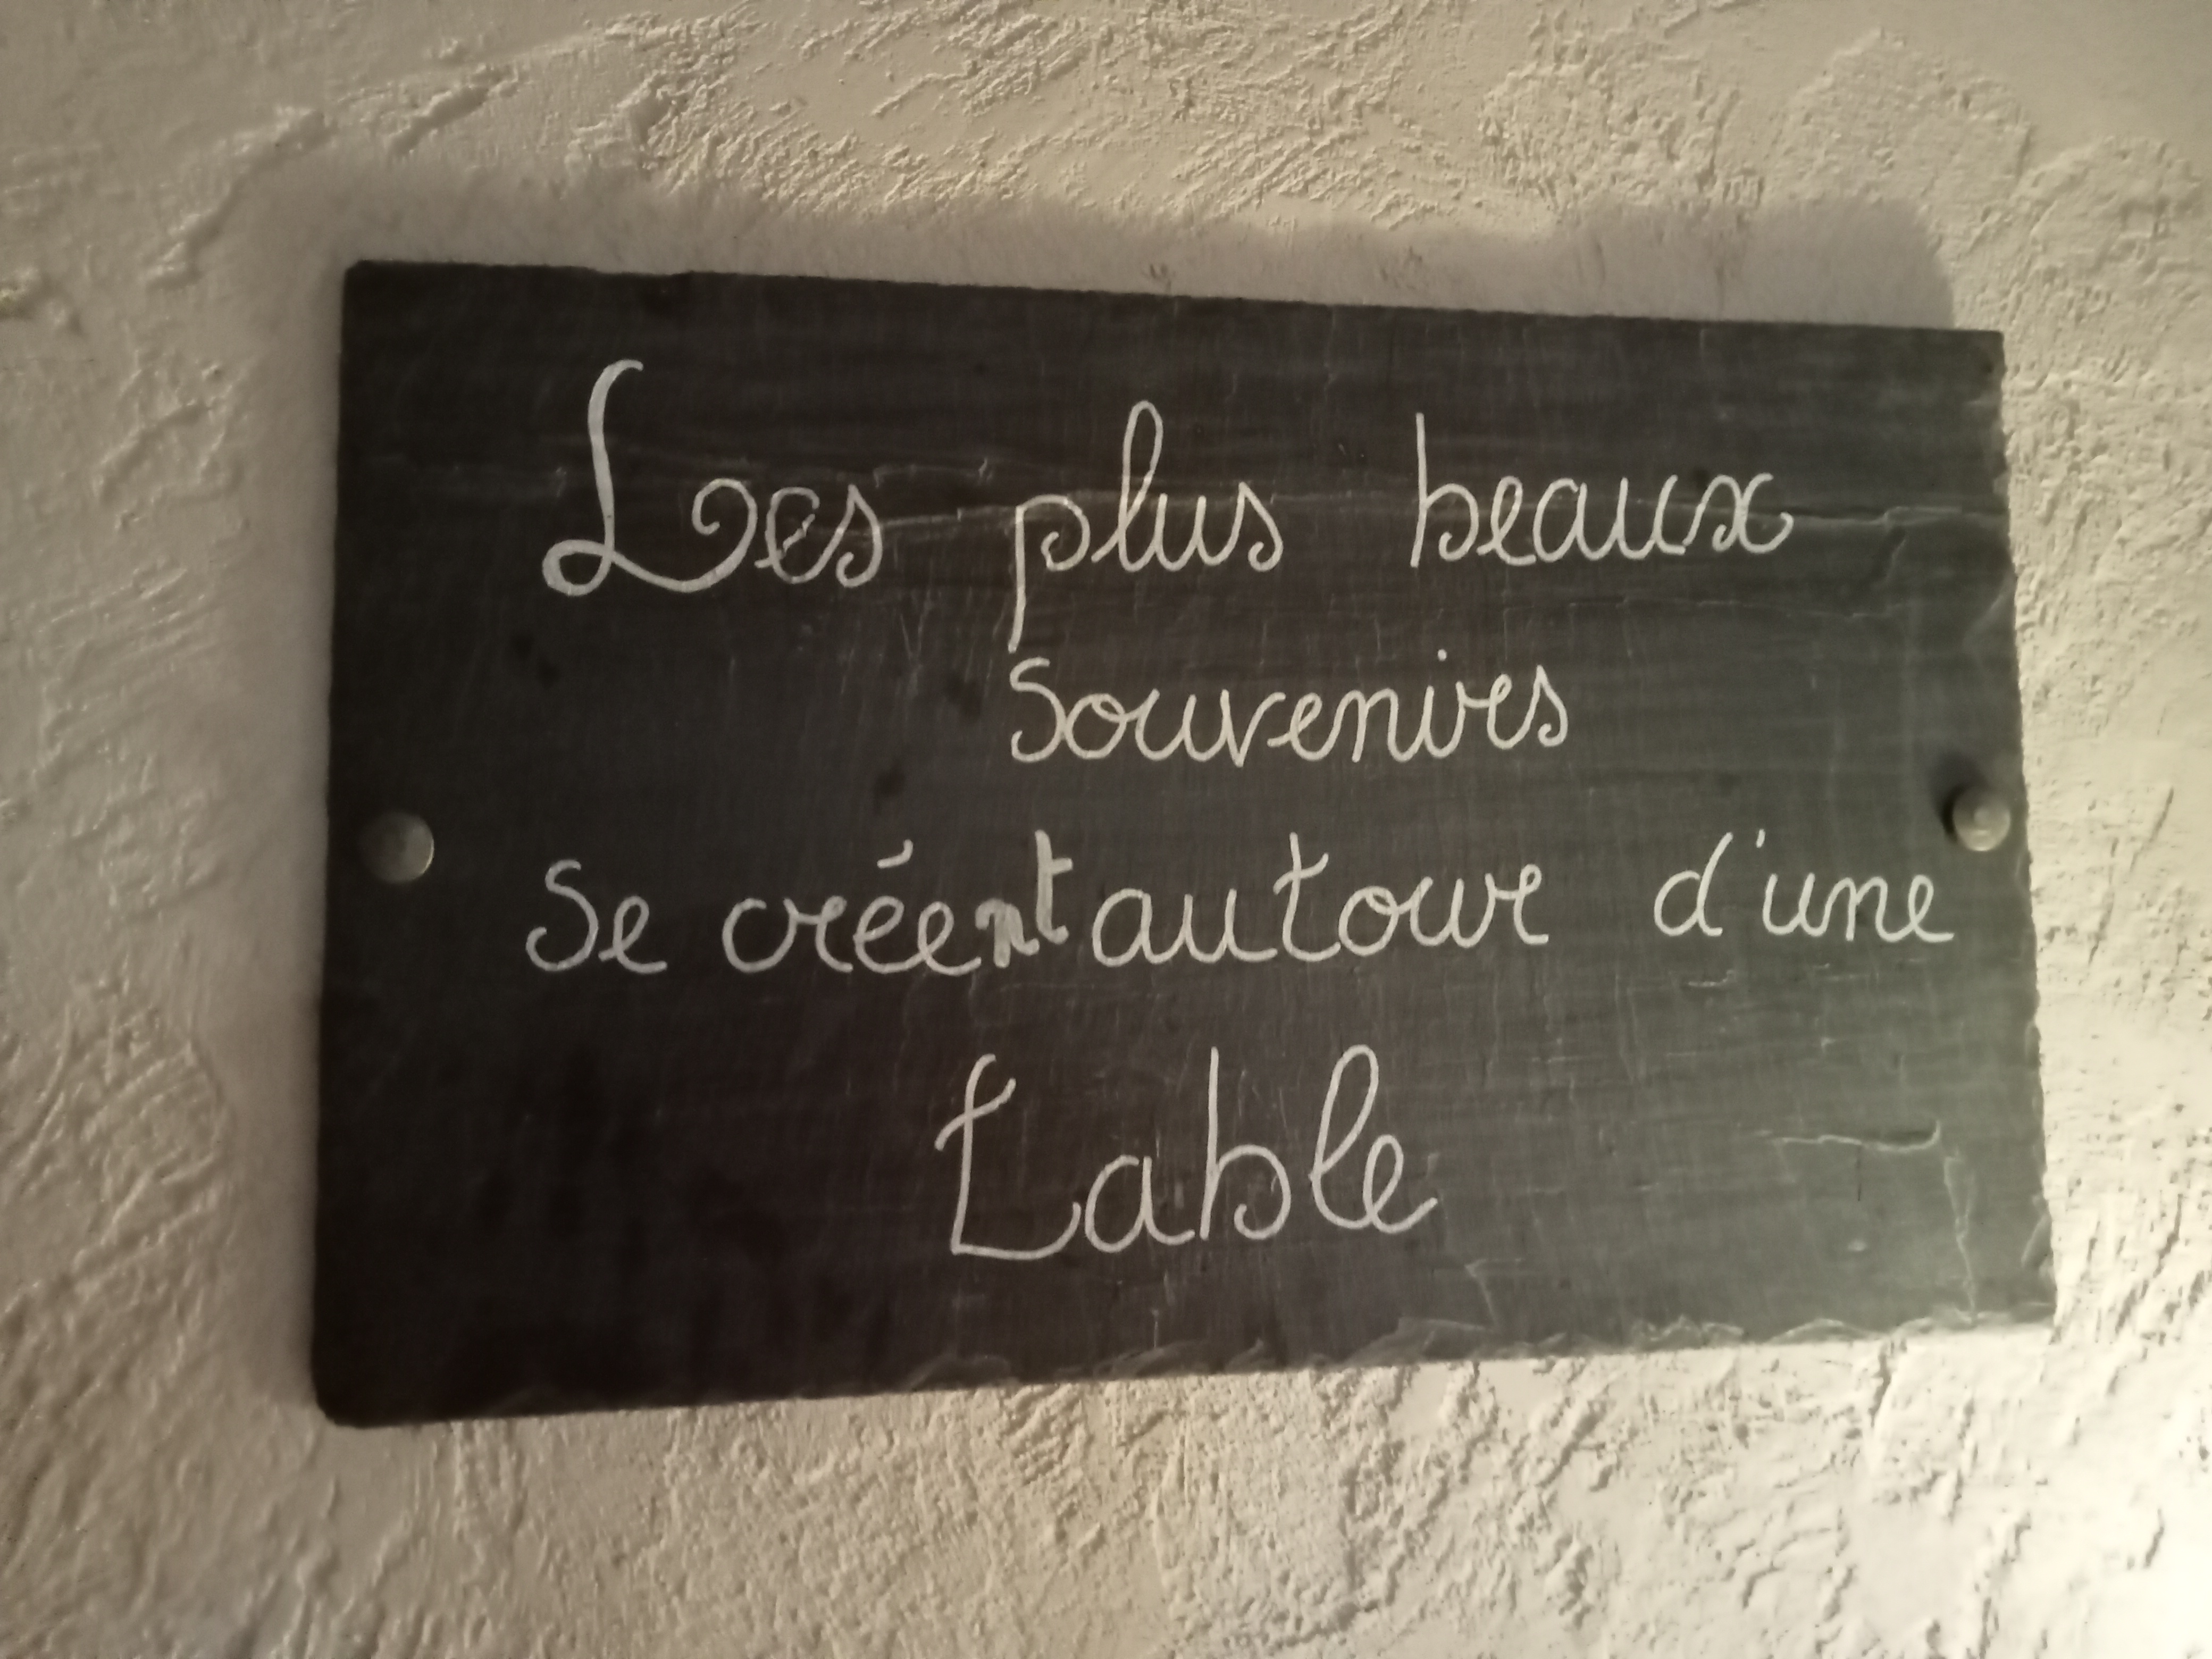 Les plus beaux
Souvenirs
Se créent autour d'une
Table